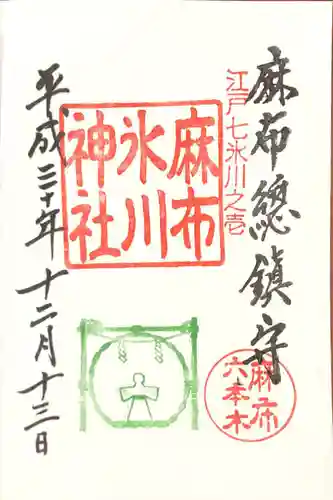 麻布総鎮守
江戸七氷川之壱
麻布
氷川
神社
麻布
六本木
平成三十年十二月十三日